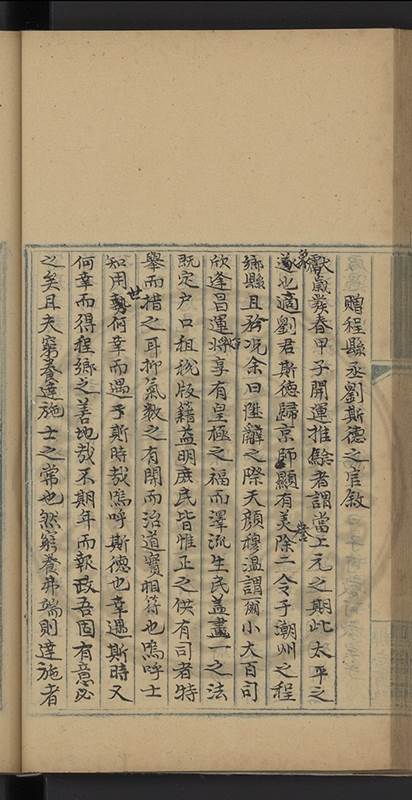 贈程縣丞劉斯德之官敘
獻歲發春甲子開運推驗者謂當上元之期此太平之
象
遂也適劉君斯德歸京師顯有美除二令于潮州之程
鄉縣且矜況余曰陛辭之際天顔穆溫謂爾小大百司
欣逢昌運將享有皇極之福而澤流生民蓋畫一之法
既定戶口租稅版籍益明庶民皆惟正之供有司者特
舉而措之耳抑氣數之有開而治道實相符也嗚呼士
世
知用何幸而遇于斯時哉嗚呼斯德也幸遇斯時又
何幸而得程鄉之善地哉不期年而報政吾固有意必
之矣且夫窮養達施士之常也然窮養弗端則達施者